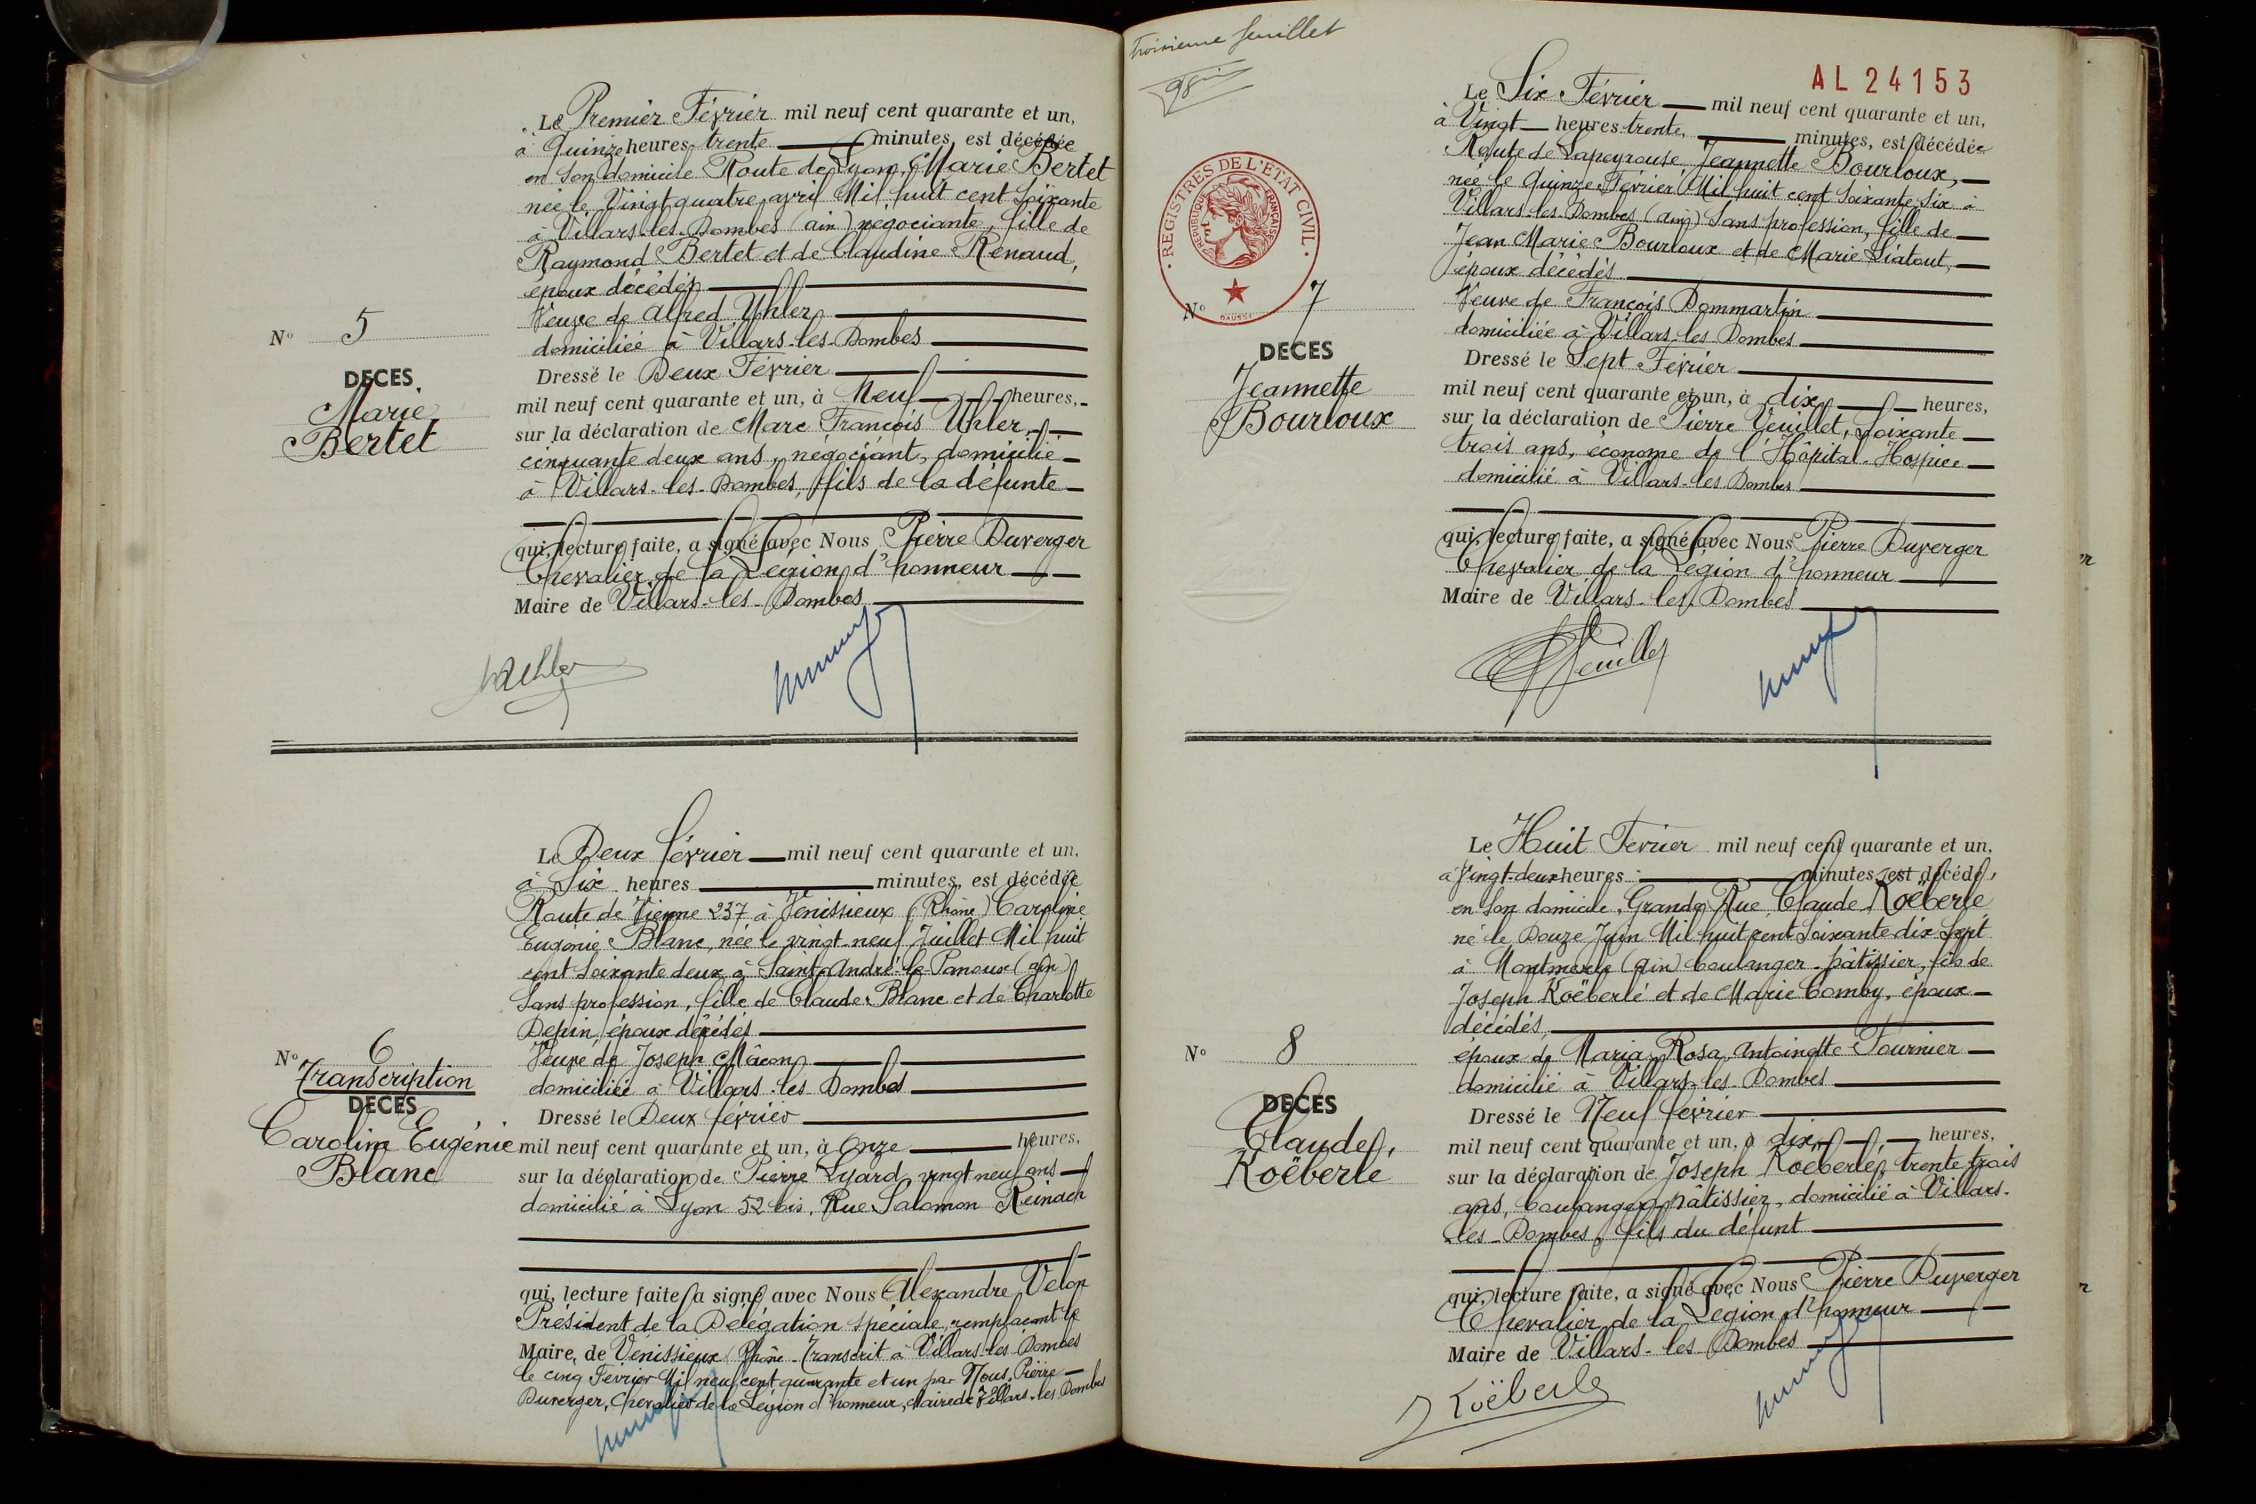 Le Premier Février mil neuf cent quarante et un,
à Quinze heures trente minutes, est décédée
en son domicile Route de Lyon, Marie Bertet
née le Vingt quatre avril Mil huit cent soixante
à Villars-les-Dombes (ain) négociante, fille de
Raymond Bertet et de Claudine Renaud,
époux décédés
Veuve de Alfred Uhler
domiciliée à Villars-les-Dombes
N° 5
DECES
Marie
Bertet
Dressé le Deux Février
mil neuf cent quarante et un, à Neuf heures,
sur la déclaration de Marc François Uhler
cinquante deux ans, négociant, domicilié
à Villars-les-Dombes, fils de la défunte
qui, lecture faite, a signé avec Nous Pierre Duverger
Chevalier de la Légion d'honneur
Maire de Villars-les-Dombes
Le Deux février mil neuf cent quarante et un,
à Six heures minutes, est décédée
Route de Vienne 237 à Vénissieux (Rhône) Caroline
Eugénie Blanc, née le vingt-neuf Juillet Mil huit
cent soixante deux à Saint-André-le-Panoux (ain)
Sans profession, fille de Claude Blanc et de Charlotte
Depin, époux décédés
Veuve de Joseph Mâcon
domiciliée à Villars-les Dombes
N° 6
Transcription
DECES
Caroline Eugénie
Blanc
Dressé le Deux février
mil neuf cent quarante et un, à Onze heures,
sur la déclaration de Pierre Lyard, vingt neuf ans
domicilié à Lyon 52 bis, Rue Salomon Reinach
qui, lecture faite, a signé avec Nous Alexandre Velon
Président de la Délégation spéciale, remplaçant le
Maire, de Vénissieux Rhône. Transcrit à Villars-les-Dombes
le cinq Février Mil neuf cent quarante et un par Nous, Pierre
Duverger, Chevalier de la Légion d'honneur, Maire de Villars-les-Dombes
Troisième feuillet
AL 24153
REGISTRES DE L'ETAT CIVIL
REPUBLIQUE FRANÇAISE
Le Six Février mil neuf cent quarante et un,
à Vingt heures trente, minutes, est décédée
Route de Lapeyrouse Jeannette Bourloux,
née le Quinze Février Mil huit cent soixante Six à
Villars-les-Dombes (ain) Sans profession, fille de
Jean Marie Bourloux et de Marie Liatout,
époux décédés
Veuve de François Dommartin
domiciliée à Villars-les Dombes
N° 7
DECES
Jeannette
Bourloux
Dressé le Sept Février
mil neuf cent quarante et un, à dix heures,
sur la déclaration de Pierre Veuillet, soixante
trois ans, économe de l'Hôpital-Hospice
domicilié à Villars-les Dombes
qui, lecture faite, a signé avec Nous Pierre Duverger
Chevalier de la Légion d'honneur
Maire de Villars-les-Dombes
Le Huit Février mil neuf cent quarante et un,
à Vingt-deux heures minutes, est décédé,
en son domicile, Grande Rue, Claude Koëberlé
né le Douze Juin Mil huit cent soixante dix Sept
à Montmerle (ain) boulanger-pâtissier, fils de
Joseph Koëberlé et de Marie Comby, époux
décédés,
époux de Maria Rosa Antoinette Fournier
domicilié à Villars-les-Dombes
N° 8
DECES
Claude,
Koëberlé
Dressé le Neuf février
mil neuf cent quarante et un, à dix heures,
sur la déclaration de Joseph Koëberlé, trente trois
ans, boulanger-pâtissier, domicilié à Villars-
-les-Dombes, fils du défunt
qui, lecture faite, a signé avec Nous Pierre Duverger
Chevalier de la Légion d'honneur
Maire de Villars-les-Dombes
J Koëberlé